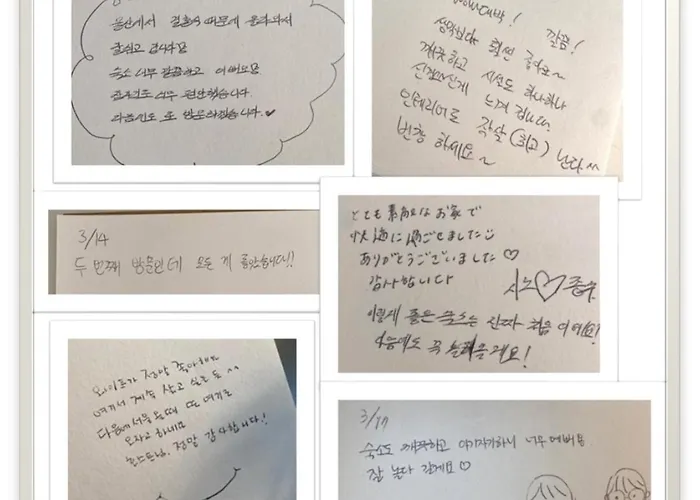 울산에서 결혼식 때문에 올라와서
잘쉬고 갑니다용
숙소 너무 깔끔하고 이뻐요용
너무 편안했습니다
다음에도 또 방문하겠습니다 ♥
대박! 깔끔!
생각보다 훨씬 좋아요~
깨끗하고 시설도 하나하나
느껴집니다.
인테리어도 (최고) 난다^^
번창 하세요~
3/14
두번째 방문인데 모든 게 좋았습니다!
とても素敵なお家で
快適に過ごせました☺
ありがとうございました♡
감사합니다
이렇게 좋은 숙소는 진짜 처음이에요!
다음에도 꼭 올게요!
와이프가 정말 좋아해요
여기서 계속 살고 싶을 듯^^
다음에 서울 올때 또 여기로
오자고 하네요
호스트님. 정말 감사합니다!
3/17
숙소도 깨끗하고 아기자기하니 너무 예뻐용
잘 놀다 갈게요♡